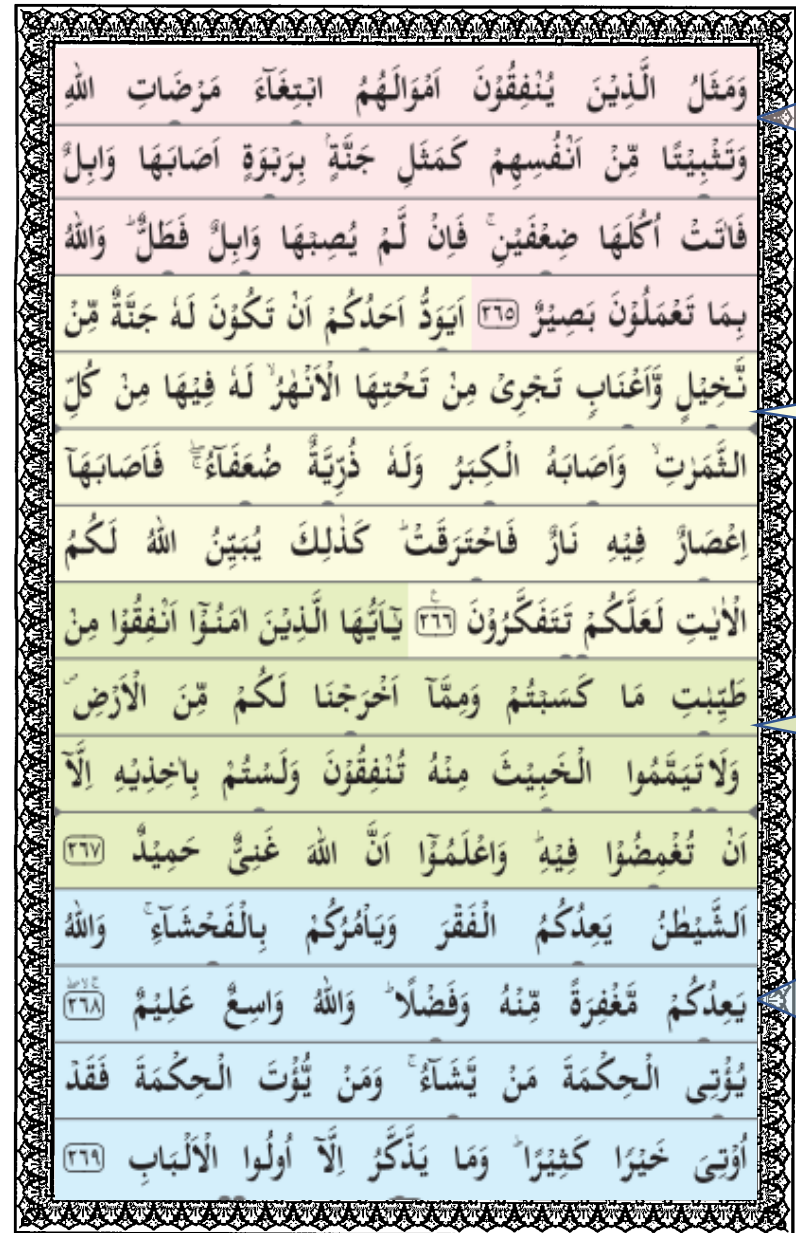 وَمَثَلُ الَّذِيْنَ يُنْفِقُوْنَ اَمْوَالَهُمُ ابْتِغَآءَ مَرْضَاتِ اللّٰهِ
وَتَثْبِيْتًا مِّنْ اَنْفُسِهِمْ كَمَثَلِ جَنَّةٍۢ بِرَبْوَةٍ اَصَابَهَا وَابِلٌ
فَاٰتَتْ اُكُلَهَا ضِعْفَيْنِ ۚ فَاِنْ لَّمْ يُصِبْهَا وَابِلٌ فَطَلٌّ ؕ وَاللّٰهُ
بِمَا تَعْمَلُوْنَ بَصِيْرٌ ﴿۲۶۵﴾ اَيَوَدُّ اَحَدُكُمْ اَنْ تَكُوْنَ لَهٗ جَنَّةٌ مِّنْ
نَّخِيْلٍ وَّاَعْنَابٍ تَجْرِىْ مِنْ تَحْتِهَا الْاَنْهٰرُ ۙ لَهٗ فِيْهَا مِنْ كُلِّ
الثَّمَرٰتِ ۙ وَاَصَابَهُ الْكِبَرُ وَلَهٗ ذُرِّيَّةٌ ضُعَفَآءُ ۖۚ فَاَصَابَهَاۤ
اِعْصَارٌ فِيْهِ نَارٌ فَاحْتَرَقَتْ ؕ كَذٰلِكَ يُبَيِّنُ اللّٰهُ لَكُمُ
الْاٰيٰتِ لَعَلَّكُمْ تَتَفَكَّرُوْنَ ﴿۲۶۶﴾ يٰۤاَيُّهَا الَّذِيْنَ اٰمَنُوْۤا اَنْفِقُوْا مِنْ
طَيِّبٰتِ مَا كَسَبْتُمْ وَمِمَّاۤ اَخْرَجْنَا لَكُمْ مِّنَ الْاَرْضِ ۪
وَلَا تَيَمَّمُوا الْخَبِيْثَ مِنْهُ تُنْفِقُوْنَ وَلَسْتُمْ بِاٰخِذِيْهِ اِلَّاۤ
اَنْ تُغْمِضُوْا فِيْهِ ؕ وَاعْلَمُوْۤا اَنَّ اللّٰهَ غَنِىٌّ حَمِيْدٌ ﴿۲۶۷﴾
اَلشَّيْطٰنُ يَعِدُكُمُ الْفَقْرَ وَيَاْمُرُكُمْ بِالْفَحْشَآءِ ۚ وَاللّٰهُ
يَعِدُكُمْ مَّغْفِرَةً مِّنْهُ وَفَضْلًا ؕ وَاللّٰهُ وَاسِعٌ عَلِيْمٌ ﴿۲۶۸﴾
يُّؤْتِى الْحِكْمَةَ مَنْ يَّشَآءُ ۚ وَمَنْ يُّؤْتَ الْحِكْمَةَ فَقَدْ
اُوْتِىَ خَيْرًا كَثِيْرًا ؕ وَمَا يَذَّكَّرُ اِلَّاۤ اُولُوا الْاَلْبَابِ ﴿۲۶۹﴾